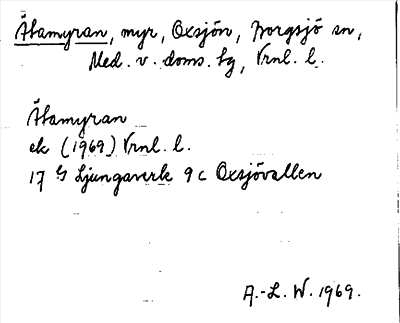 Åtamyran, myr, Oxsjön, Borgsjö sn,
Med. v. doms. tg, Vrnl. l.
Åtamyran
ek (1969) Vrnl. l.
17 G Ljungaverk 9 c Oxsjövallen
A.-L. W. 1969.